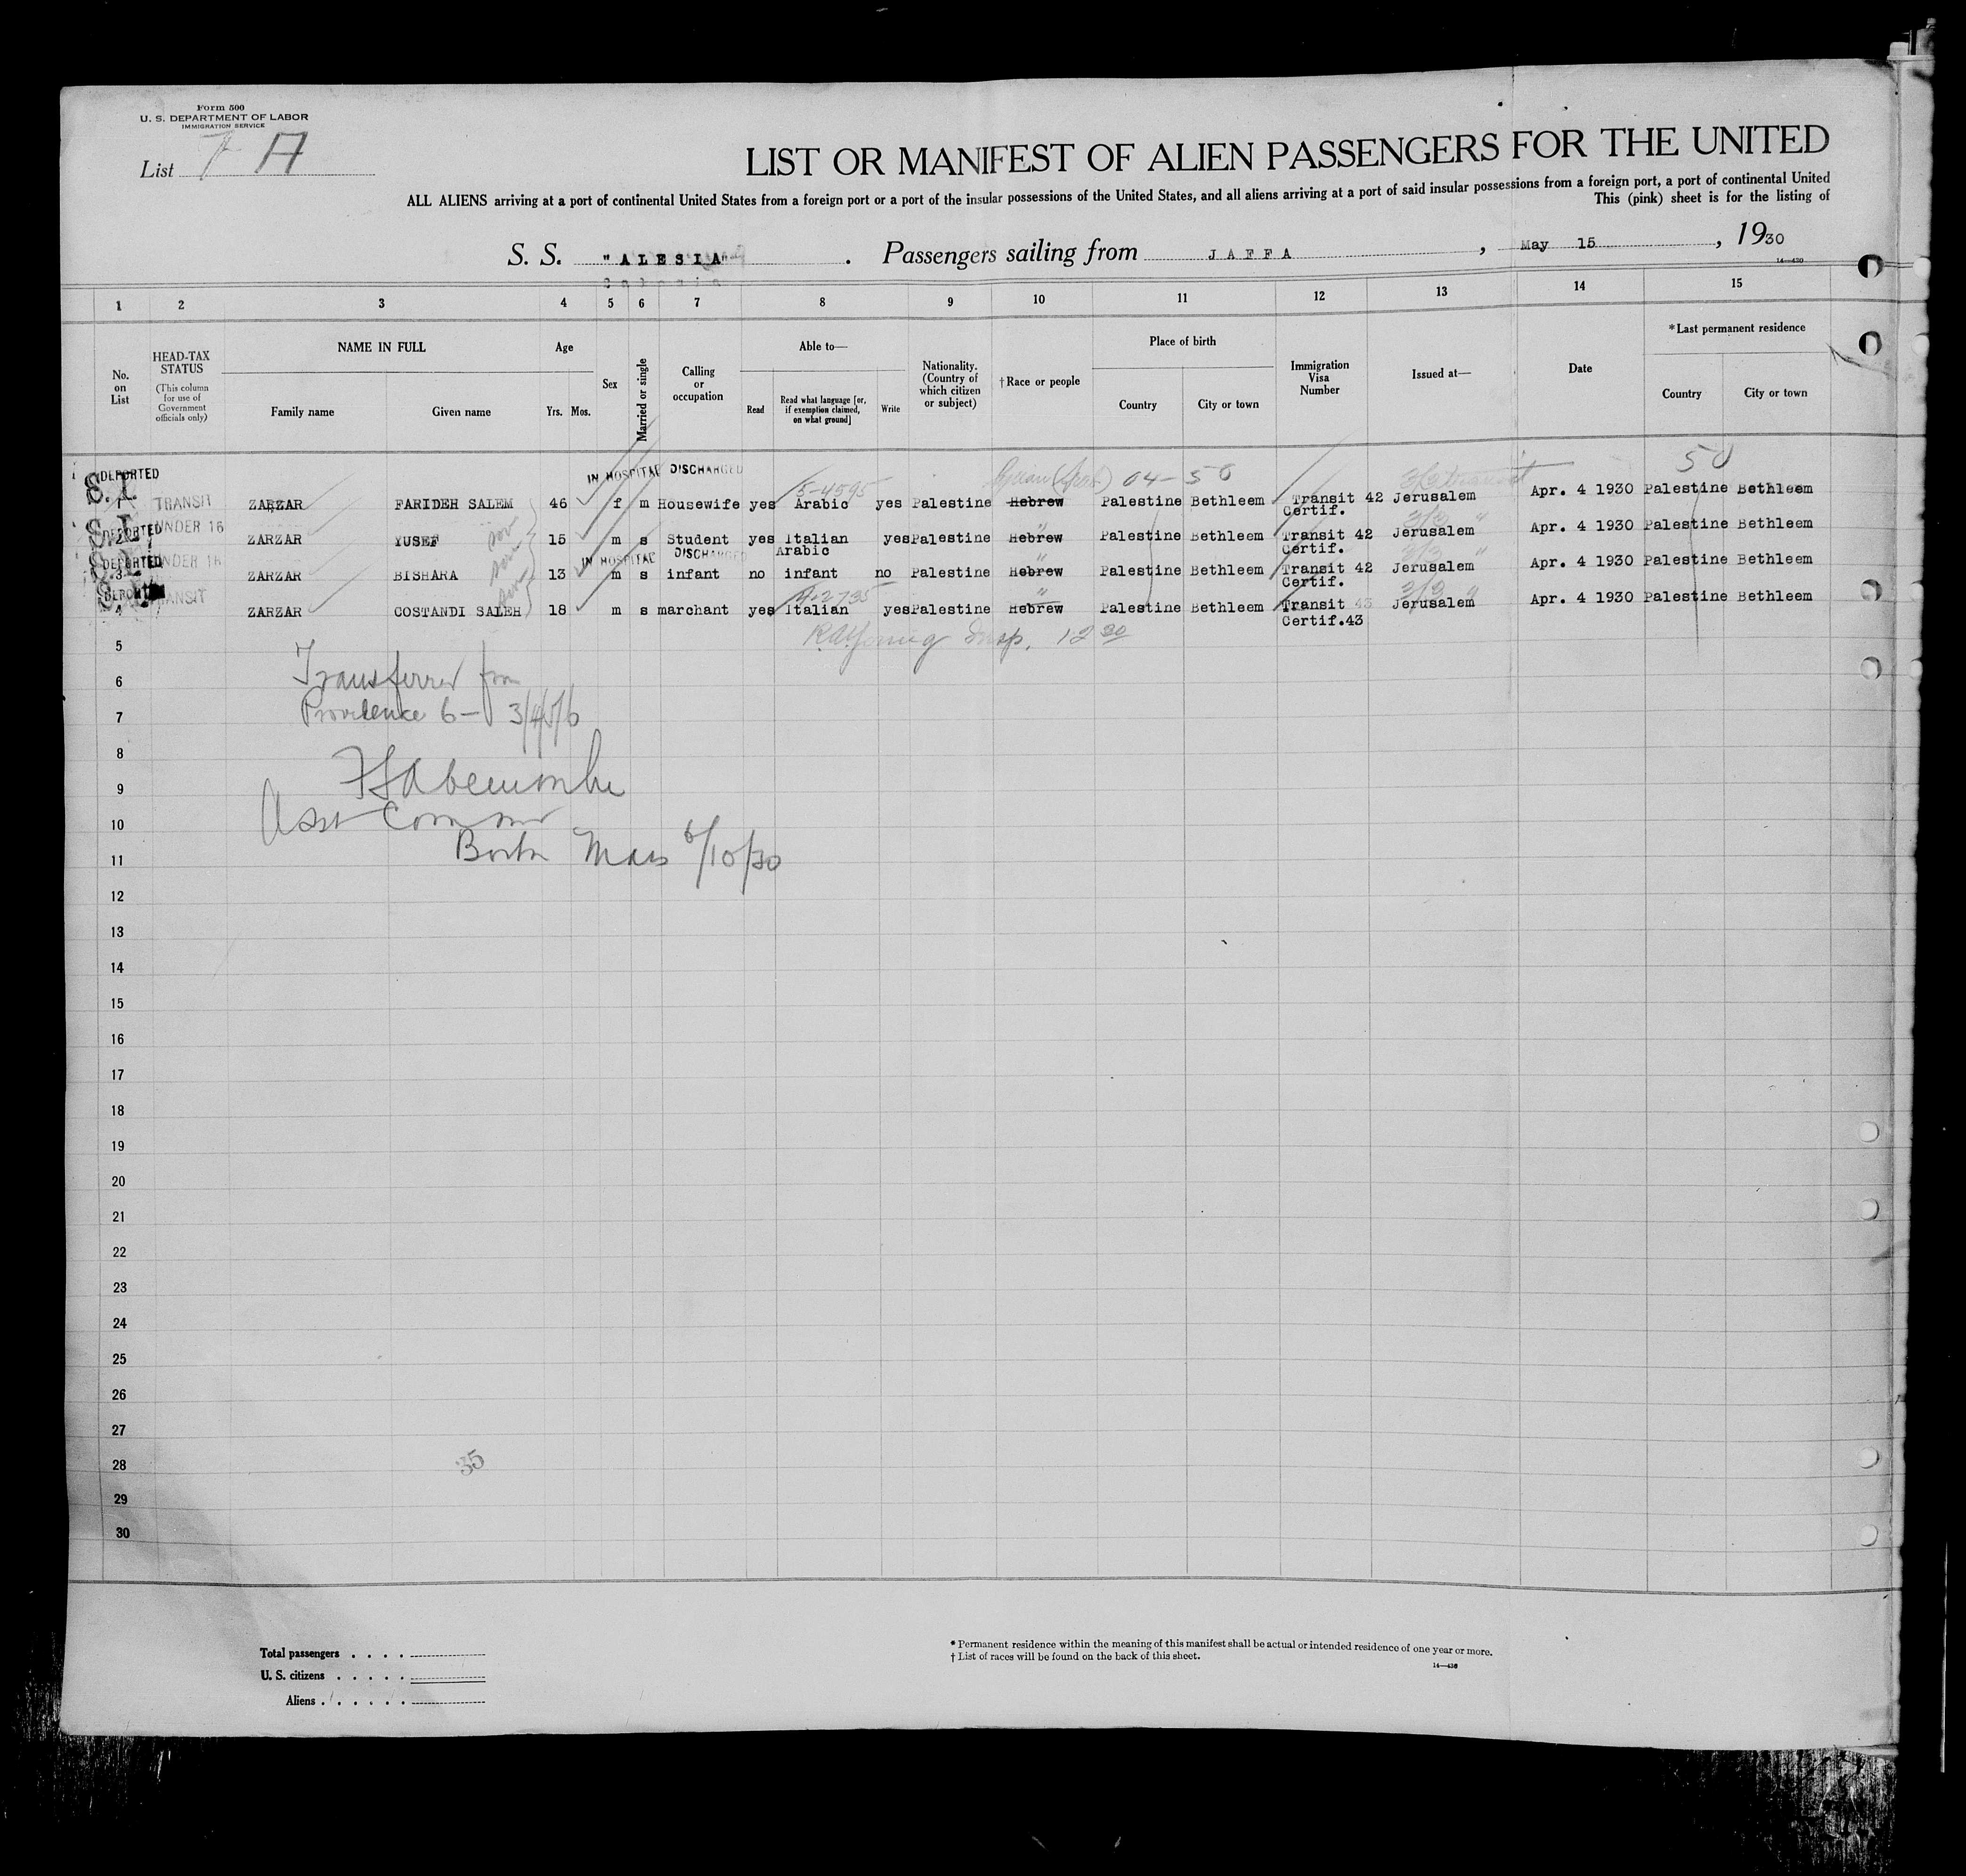 Form 500
U. S. DEPARTMENT OF LABOR
IMMIGRATION SERVICE
List 7 A
LIST OR MANIFEST OF ALIEN PASSENGERS FOR THE UNITED
ALL ALIENS arriving at a port of continental United States from a foreign port or a port of the insular possessions of the United States, and all aliens arriving at a port of said insular possessions from a foreign port, a port of continental United
This (pink) sheet is for the listing of
S. S. "ALESIA" . Passengers sailing from JAFFA , May 15 , 1930
14—430
1 2 3 4 5 6 7 8 9 10 11 12 13 14 15
No. on List
HEAD-TAX STATUS (This column for use of Government officials only)
NAME IN FULL
Family name Given name
Age
Yrs. Mos.
Sex
Married or single
Calling or occupation
Able to—
Read
Read what language [or, if exemption claimed, on what ground]
Write
Nationality. (Country of which citizen or subject)
†Race or people
Place of birth
Country City or town
Immigration Visa Number
Issued at—
Date
*Last permanent residence
Country City or town
DEPORTED IN HOSPITAL DISCHARGED 04-50 50
S.I. 5-4595
1 TRANSIT ZARZAR FARIDEH SALEM 46 f m Housewife yes Arabic yes Palestine Hebrew Palestine Bethleem Transit 42 Certif. Jerusalem Apr. 4 1930 Palestine Bethleem
S.I. DEPORTED UNDER 16
2 ZARZAR YUSEF son 15 m s Student yes Italian Arabic yes Palestine " Hebrew Palestine Bethleem Transit 42 Certif. Jerusalem Apr. 4 1930 Palestine Bethleem
S.I. DEPORTED UNDER 16 IN HOSPITAL DISCHARGED
3 ZARZAR BISHARA son 13 m s infant no infant no Palestine " Hebrew Palestine Bethleem Transit 42 Certif. Jerusalem Apr. 4 1930 Palestine Bethleem
S.I. DEPORTED TRANSIT 4-2735
4 ZARZAR COSTANDI SALEH son 18 m s marchant yes Italian yes Palestine " Hebrew Palestine Bethleem Transit 43 Certif.43 Jerusalem Apr. 4 1930 Palestine Bethleem
5 Insp. 12 30
6 Transferred from
7 Providence 6- 3/4/5/6
8
9
10 Asst Commr
11 Boston Mass 6/10/30
12
13
14
15
16
17
18
19
20
21
22
23
24
25
26
27
28 35
29
30
Total passengers . . . .
U. S. citizens . . . . .
Aliens . . . . . .
* Permanent residence within the meaning of this manifest shall be actual or intended residence of one year or more.
† List of races will be found on the back of this sheet.